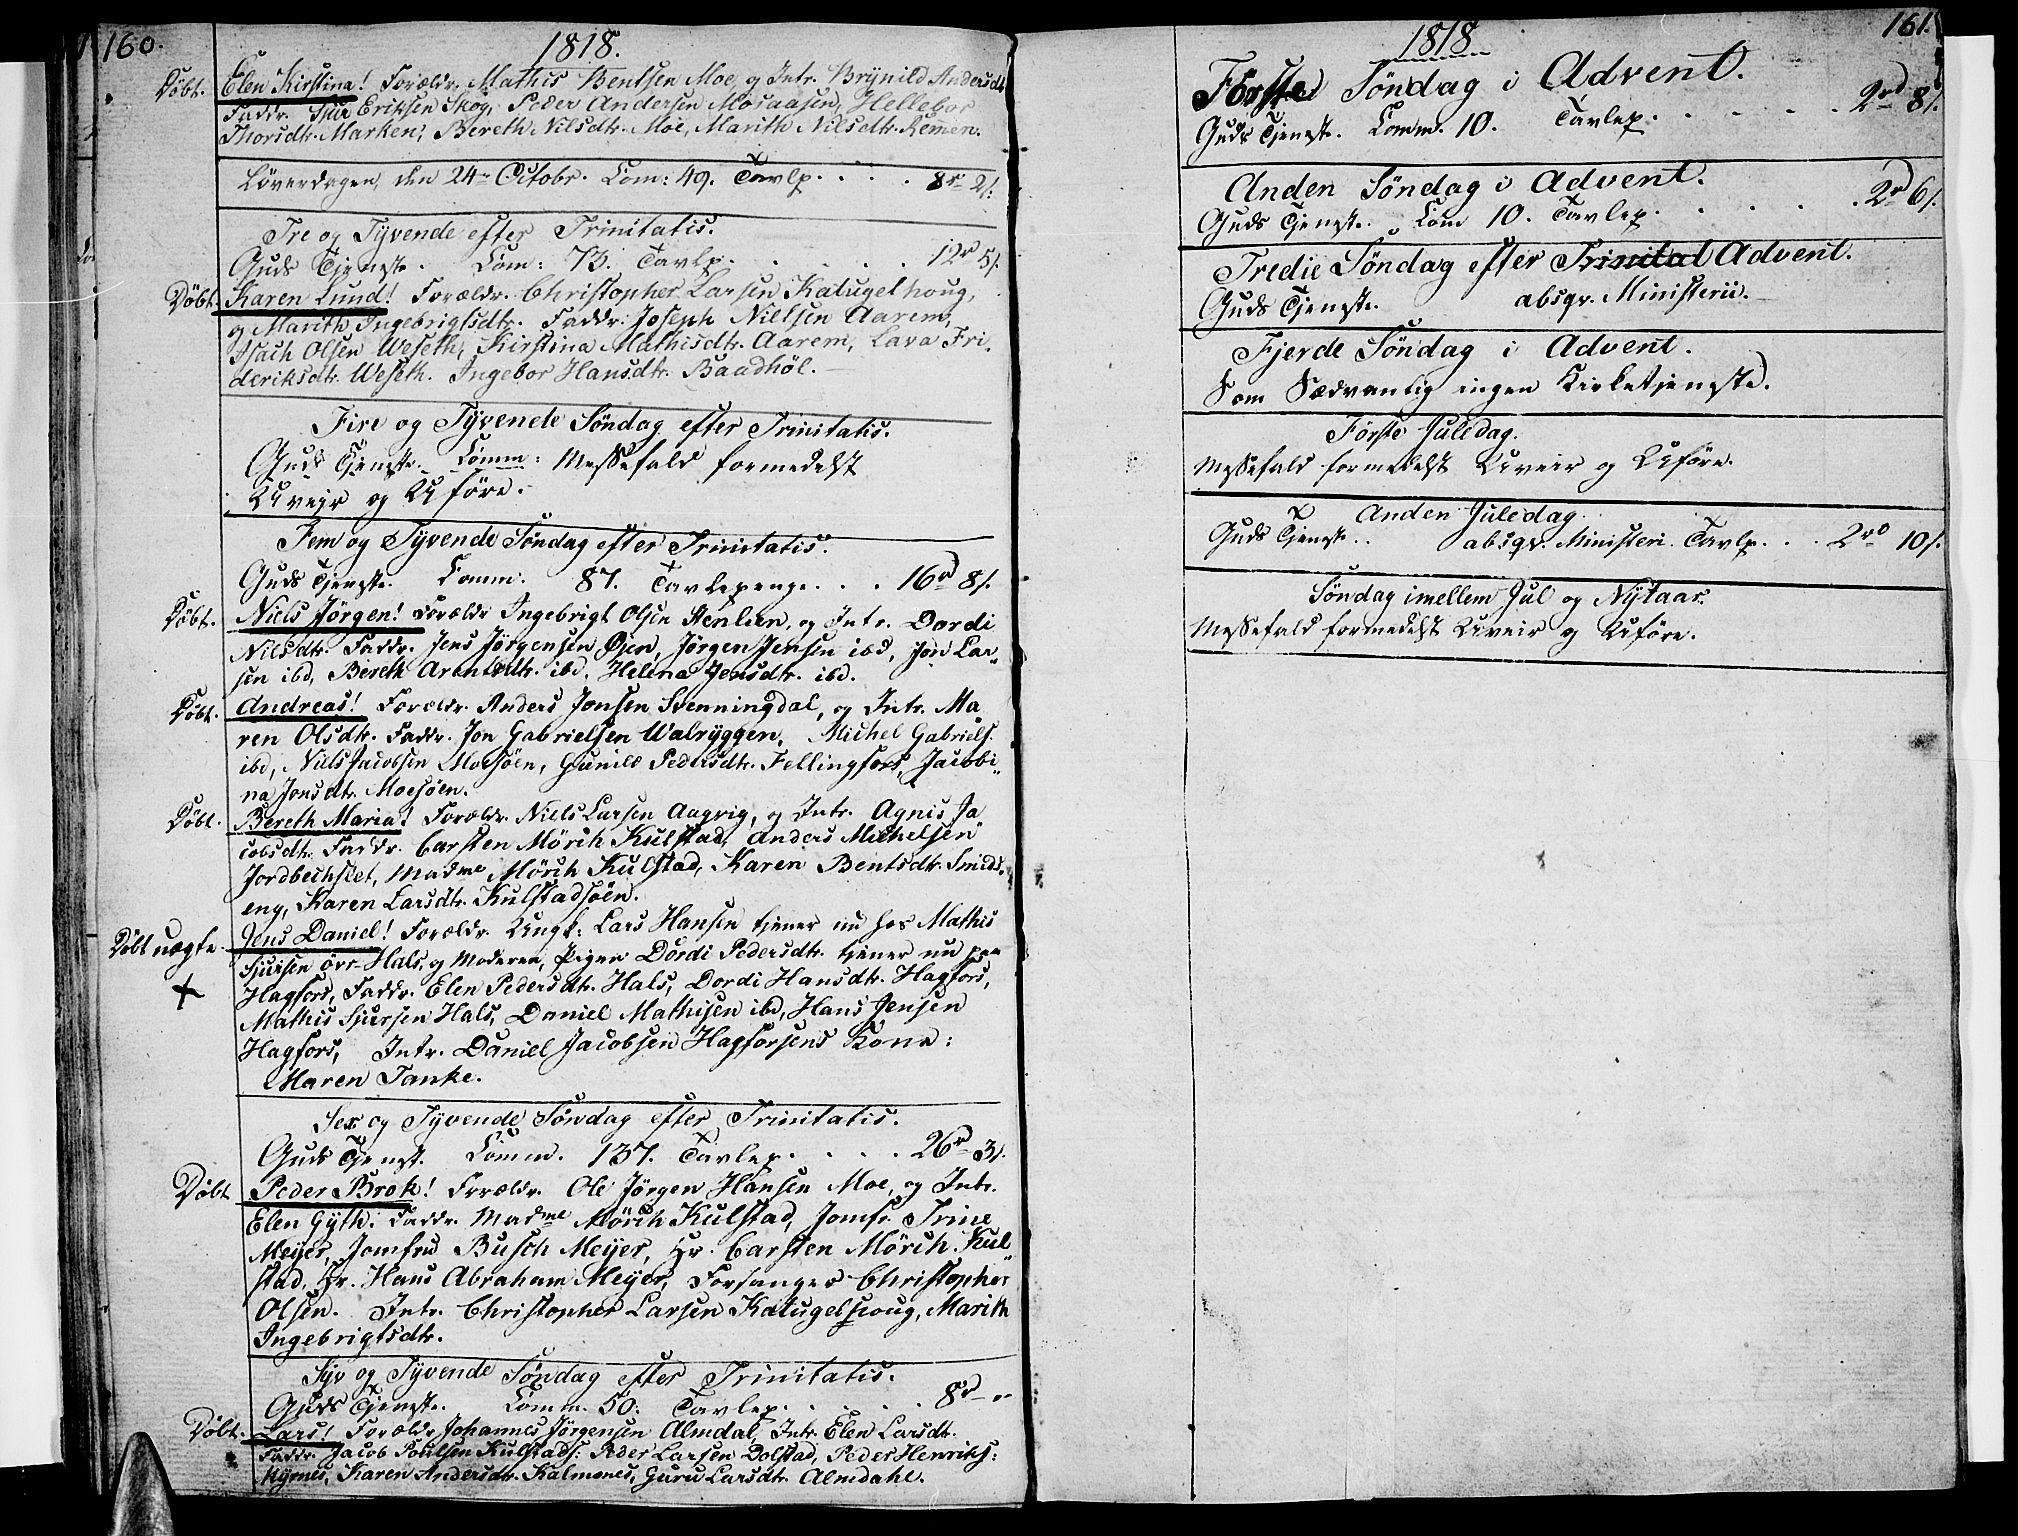 160.
1818.
Döbt. Elen Kirstina! Forældr. Mathis Bentsen Moe, og Intr. Brÿnild Andersdt.
Faddr. Sjur Eriksen Skog, Peder Andersen Mosaasen, Hellebor
Thorsdtr. Marken, Bereth Nilsdtr. Moe, Marith Nilsdtr. Remen.
Löverdagen, den 24de Octobr. Com: 49. Tavlp. . . . 8rd 2/.
Tre og Tÿvende efter Trinitatis.
Guds Tjeneste. Com: 73. Tavlp. . . . . 12rd 5/.
Döbt. Karen Lund! Forældr. Christopher Larsen Katugelhoug,
og Marith Ingebrigtsdtr. Faddr. Joseph Nielsen Aarem,
Isach Olsen Weseth, Kirstina Mathisdtr. Aarem, Lava Fri-
deriksdtr. Weseth. Ingebor Hansdtr. Baadhöl.
Fire og Tÿvende Söndag efter Trinitatis.
Guds Tjeneste. Comm: Messefald formedelst
Uvejr og Uföre.
Fem og Tÿvende Söndag efter Trinitatis.
Guds Tjeneste. Comm. 87. Tavlepenge. . . 16rd 8/.
Döbt. Niels Jörgen! Forældr Ingebrigt Olsen Stenlien, og Intr. Dordi
Nilsdtr. Faddr. Jens Jörgensen Öjen, Jörgen Jensen ibd, Jon Lar-
sen ibd, Bereth Arentsdtr. ibd, Helena Jensdtr. ibd.
Döbt. Andreas! Forældr. Anders Jonsen Svenningdal, og Intr. Ma
ren Olsdtr. Faddr. Jon Gabrielsen Walrÿggen, Michel Gabriels.
ibd, Niels Jacobsen Mosjöen, Gunild Pedersdtr. Fellingfors, Jacobi-
na Jonsdtr. Moesjöen.
Döbt. Bereth Maria! Forældr. Niels Larsen Aagvig, og Intr. Agnis Ja
cobsdtr. Faddr. Carsten Mörch Kulstad, Anders Michelsen
Jordbechslet, Madme Mörch Kulstad, Karen Bentsdtr. Smids-
eng, Karen Larsdtr. Kulstadsjöen.
Döbt uægte. Jens Daniel! Forældr. Ungk: Lars Hansen tjener nu hos Mathis
Sjursen övr-Hals, og Moderen, Pigen Dordi Pedersdtr. tjener nu paa
Hagfors, Faddr. Elen Pedersdtr. Hals, Dordi Hansdtr. Hagfors,
Mathis Sjursen Hals, Daniel Mathisen ibd, Hans Jensen
Hagfors, Intr. Daniel Jacobsen Hagforsens Kone:
Maren Tanke.
Sex og Tÿvende Söndag efter Trinitatis.
Guds Tjenest. Comm. 137. Tavlep. . . . 26rd 3/.
Döbt Peder Brok! Forældr. Ole Jörgen Hansen Moe, og Intr.
Elen Gÿth. Faddr. Madme Mörch Kulstad, Jomfr. Trine
Meÿer, Jomfru Busch Meÿer, Hr. Carsten Mörch Kul-
stad, Hr. Hans Abraham Meÿer, Forsanger Christopher
Olsen. Intr. Christopher Larsen Katugelhoug, Marith
Ingebrigtsdtr.
Sÿv og Tÿvende Söndag efter Trinitatis.
Guds Tjeneste. Comm. 50. Tavlep. . . . . 8rd "
Döbt. Lars! Forældr Johannes Jörgensen Almdal, Intr. Elen Larsdt.
Faddr. Jacob Poulsen Kulstads: Peder Larsen Dolstad, Peder Henriks:
Kÿmes, Karen Andersdtr. Kalmones, Guru Larsdtr. Almdahl.
161.
1818
Förste Söndag i Advent.
Guds Tjeneste. Comm. 10. Tavlep. . . . . 2rd 8/.
Anden Söndag i Advent.
Guds Tjeneste. Com 10. Tavlep. . . . . 2rd 6/.
Tredie Söndag efter Trinitat Advent.
Guds Tjeneste. absqv. Ministerii.
Fjerde Söndag i Advent.
Som Sædvanlig ingen Kirketjeneste.
Förste Juledag.
Messefald formedelst Uveir og Uföre.
Anden Juledag.
Guds Tjeneste.. absqv. Ministeri. Tavlp. . . 2rd 10/.
Söndag imellem Jul og Nÿtaar.
Messefald formedelst Uveir og Uföre.